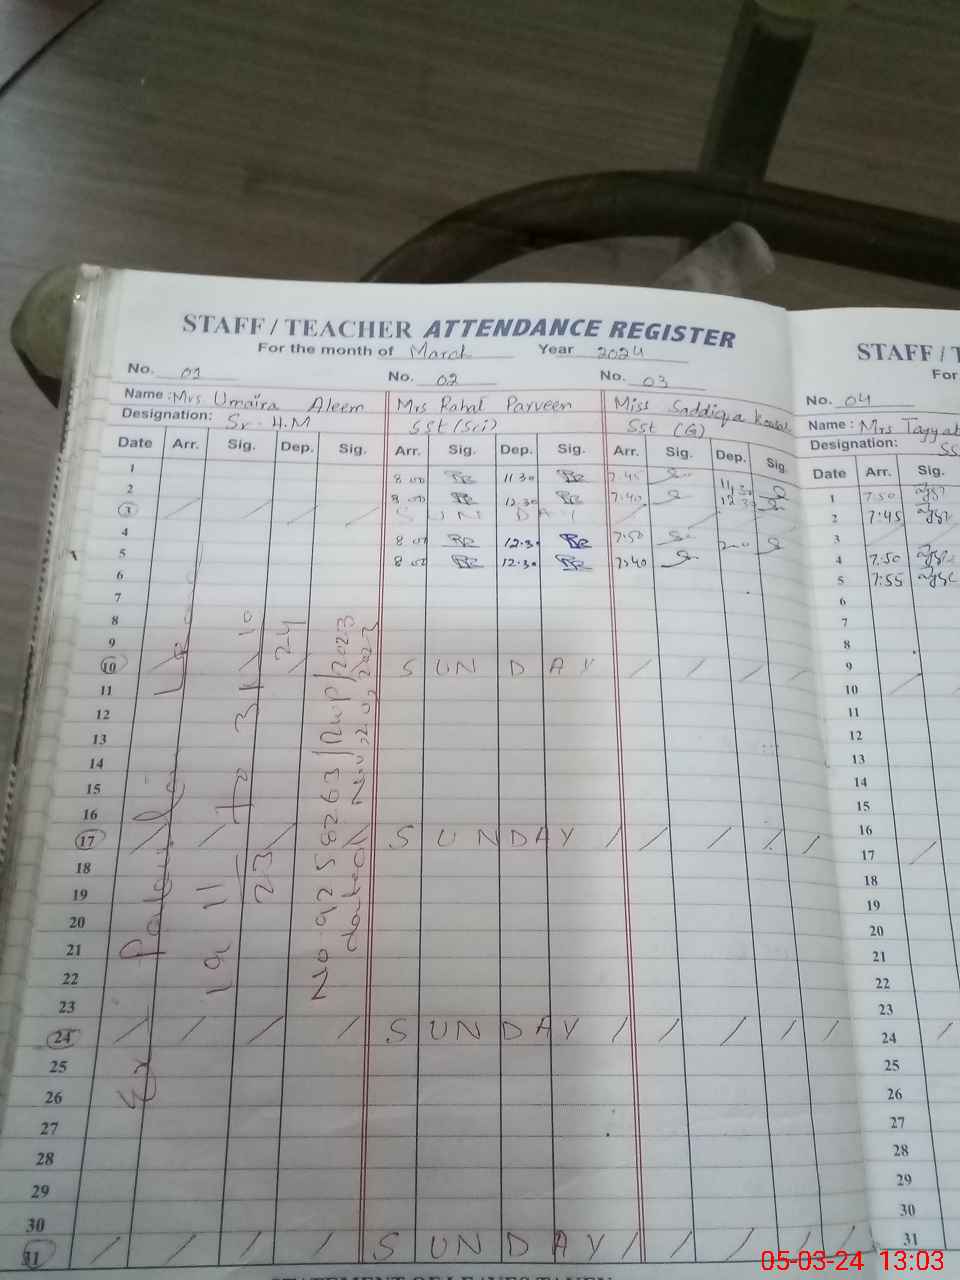 STAFF / TEACHER ATTENDANCE REGISTER
For the month of March Year 2024
No. 01 No. 02 No. 03
Name: Mrs Umaira Aleem Mrs Rahat Parveen Miss Saddiqa
Designation: Sr. H.M SSt (Sci) SSt (G)
Date Arr. Sig. Dep. Sig. Arr. Sig. Dep. Sig. Arr. Sig. Dep. Sig.
1 8.00 11.30 7.45 11.30
2 8.00 12.30 7.40 12.30
3 SUNDAY
4 8.00 12.30 7.50 2.00
5 8.00 12.30 7.40
6
7
8
9
10 SUNDAY
11
12
13
14
15
16
17 SUNDAY
18
19
20
21
22
23
24 SUNDAY
25
26
27
28
29
30
31 SUNDAY
Ex Pakistan Leave
19 11 23 To 31 10 24
No 9258263/Rwp/2023
dated Nov, 2023
STAFF / T
For
No. 04
Name: Mrs Tayyab
Designation: SS
Date Arr. Sig.
1 7.50
2 7:45
3
4 7.50
5 7:55
6
7
8
9
10
11
12
13
14
15
16
17
18
19
20
21
22
23
24
25
26
27
28
29
30
31
STATEMENT OF LEAVES TAKEN
05-03-24 13:03